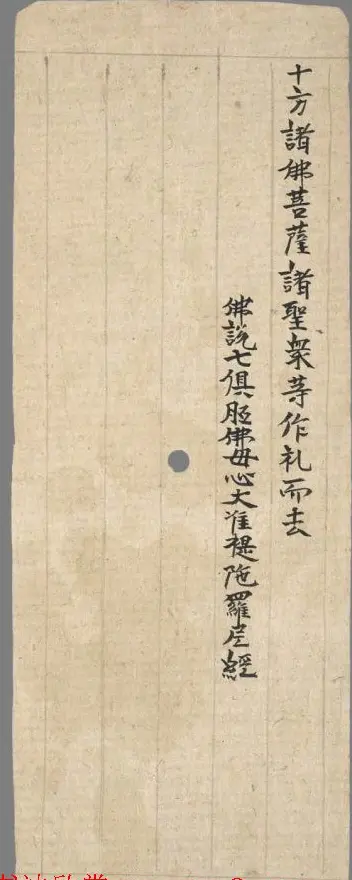 十方諸佛菩薩諸聖衆等作礼而去
佛說七俱胝佛母心大准提陁羅尼經